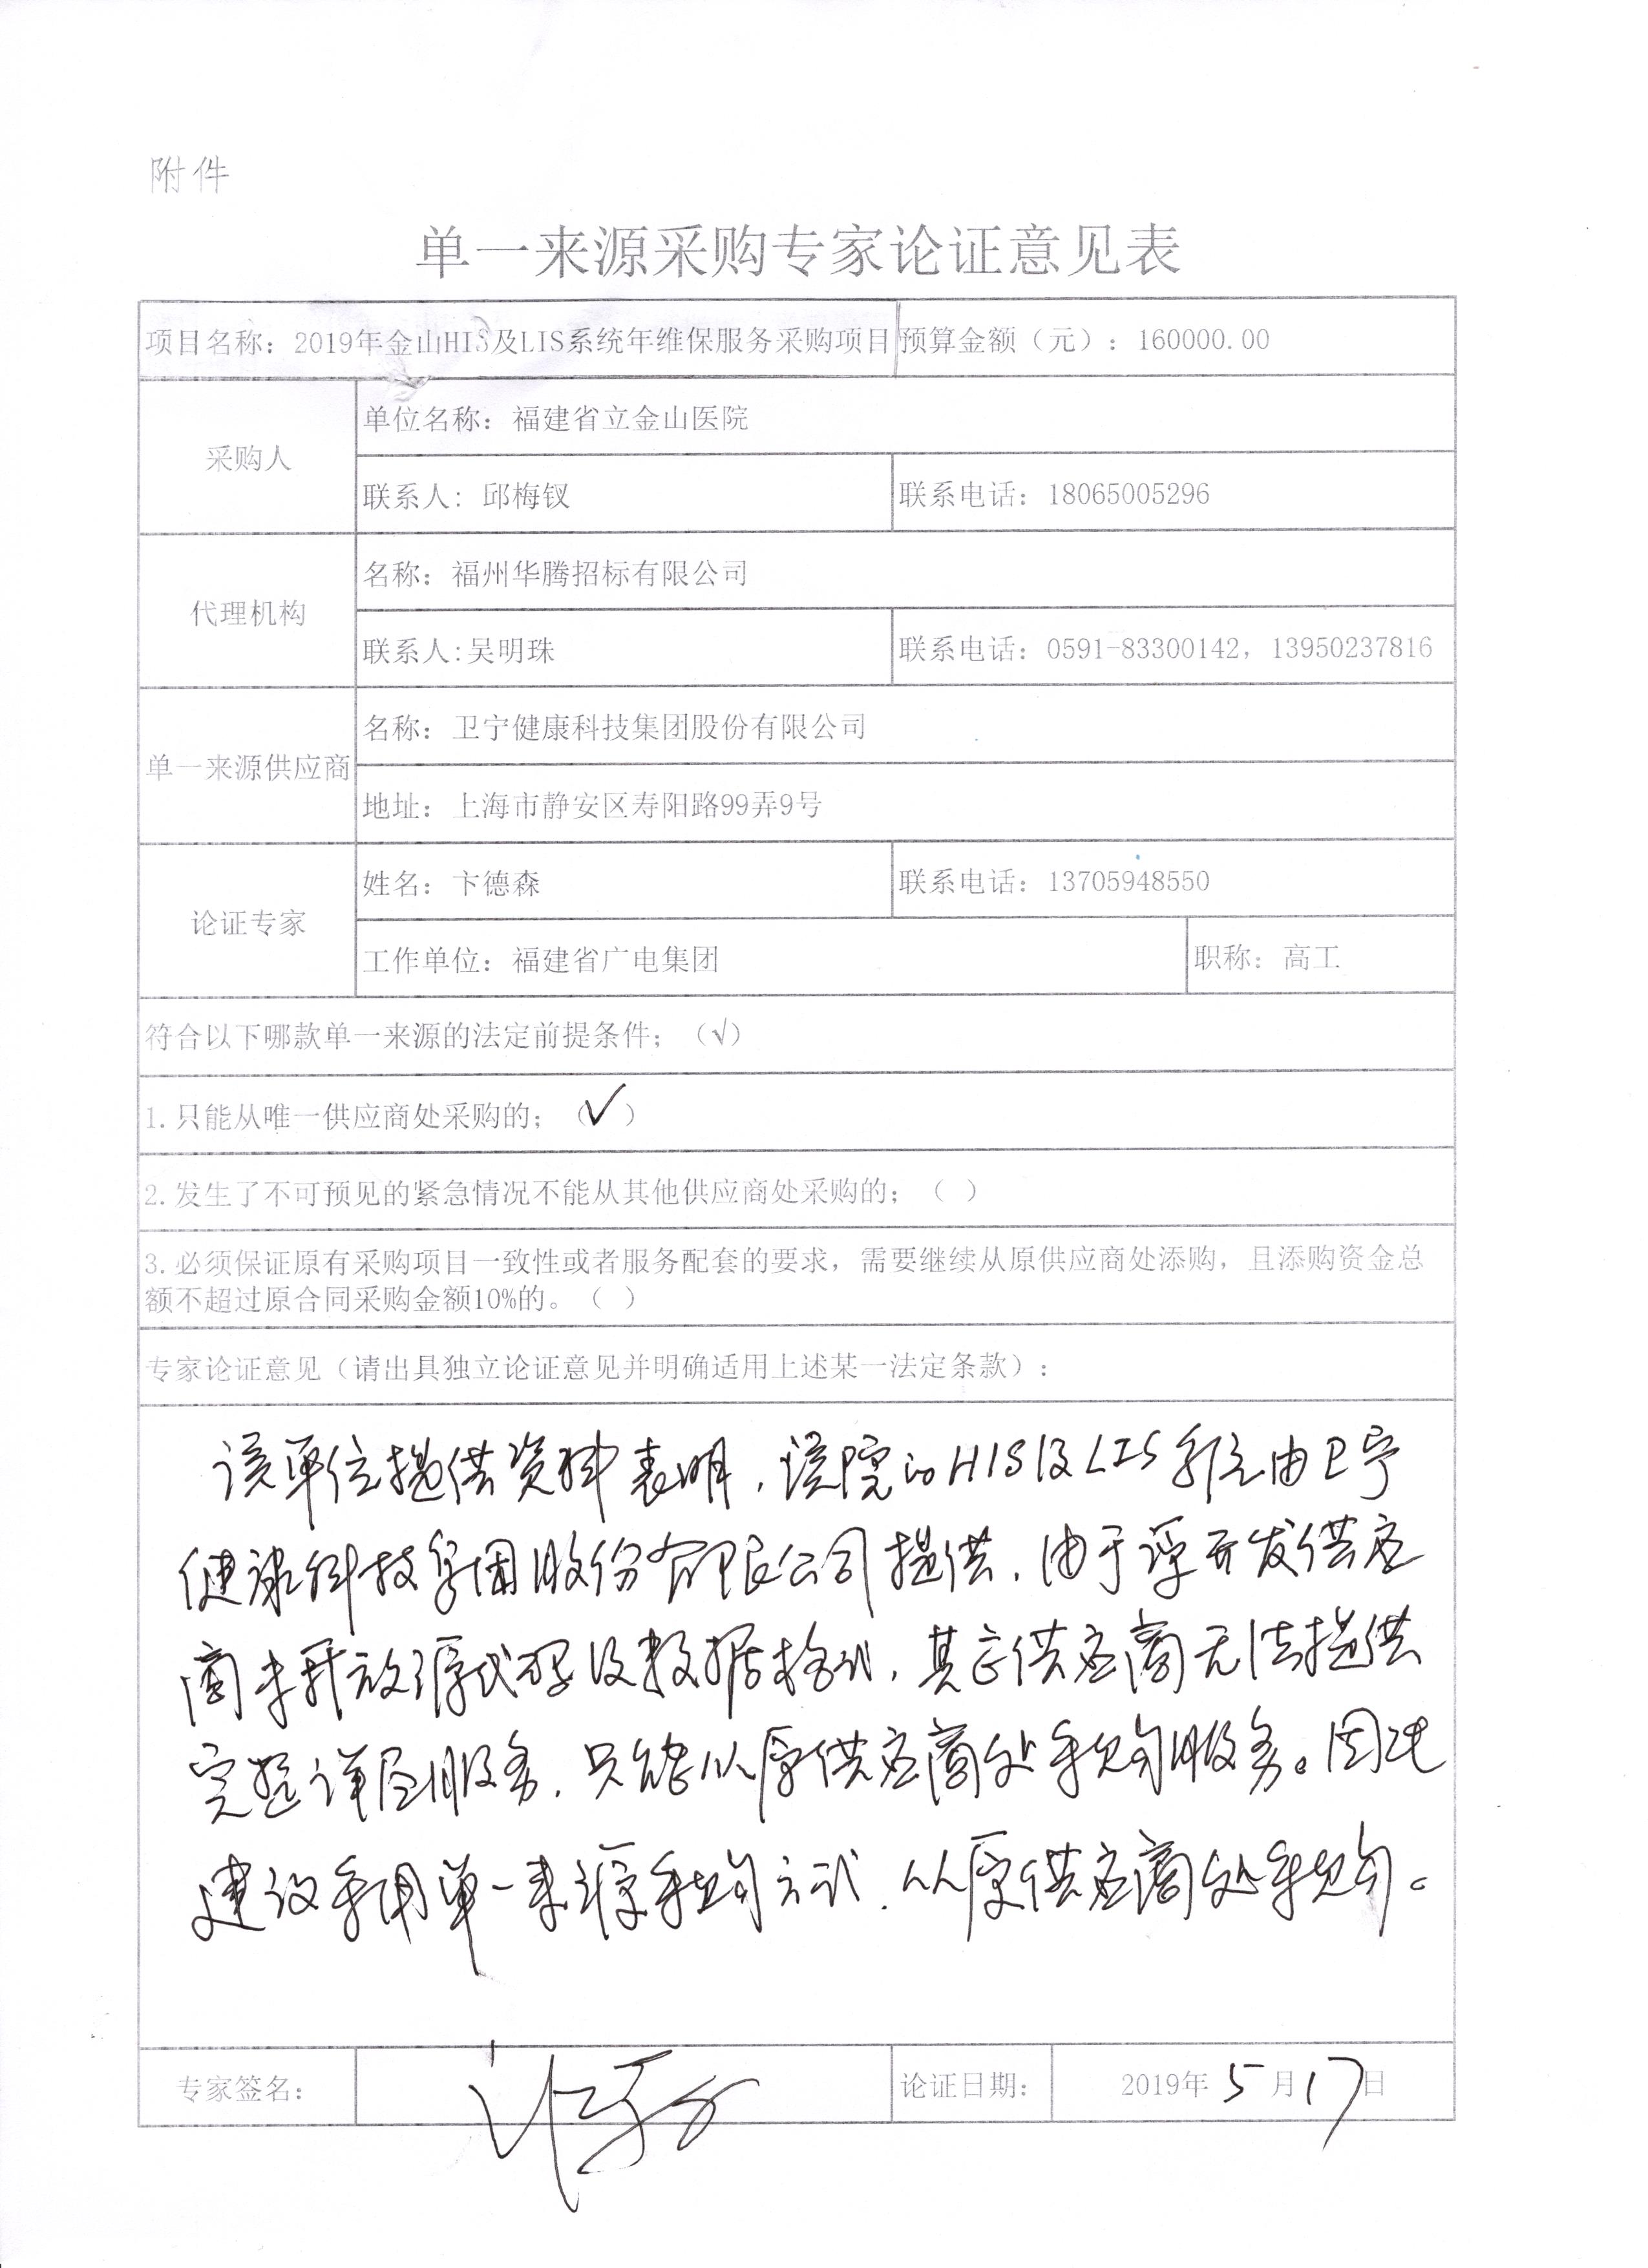 附件
单一来源采购专家论证意见表
项目名称：2019年金山HIS及LIS系统年维保服务采购项目 预算金额（元）：160000.00
采购人
单位名称：福建省立金山医院
联系人：邱梅钗 联系电话：18065005296
代理机构
名称：福州华腾招标有限公司
联系人:吴明珠 联系电话：0591-83300142，13950237816
单一来源供应商
名称：卫宁健康科技集团股份有限公司
地址：上海市静安区寿阳路99弄9号
论证专家
姓名：卞德森 联系电话：13705948550
工作单位：福建省广电集团 职称：高工
符合以下哪款单一来源的法定前提条件；（√）
1.只能从唯一供应商处采购的；（✓）
2.发生了不可预见的紧急情况不能从其他供应商处采购的；（ ）
3.必须保证原有采购项目一致性或者服务配套的要求，需要继续从原供应商处添购，且添购资金总
额不超过原合同采购金额10%的。（ ）
专家论证意见（请出具独立论证意见并明确适用上述某一法定条款）：
该单位提供资料表明，该院的HIS及LIS系统由卫宁
健康科技集团股份有限公司提供，由于开发供应
商未开放源代码及数据格式，其它供应商无法提供
完整详尽服务，只能从原供应商处采购服务。因此
建议采用单一来源采购方式，从原供应商处采购。
专家签名： 论证日期： 2019年5月17日